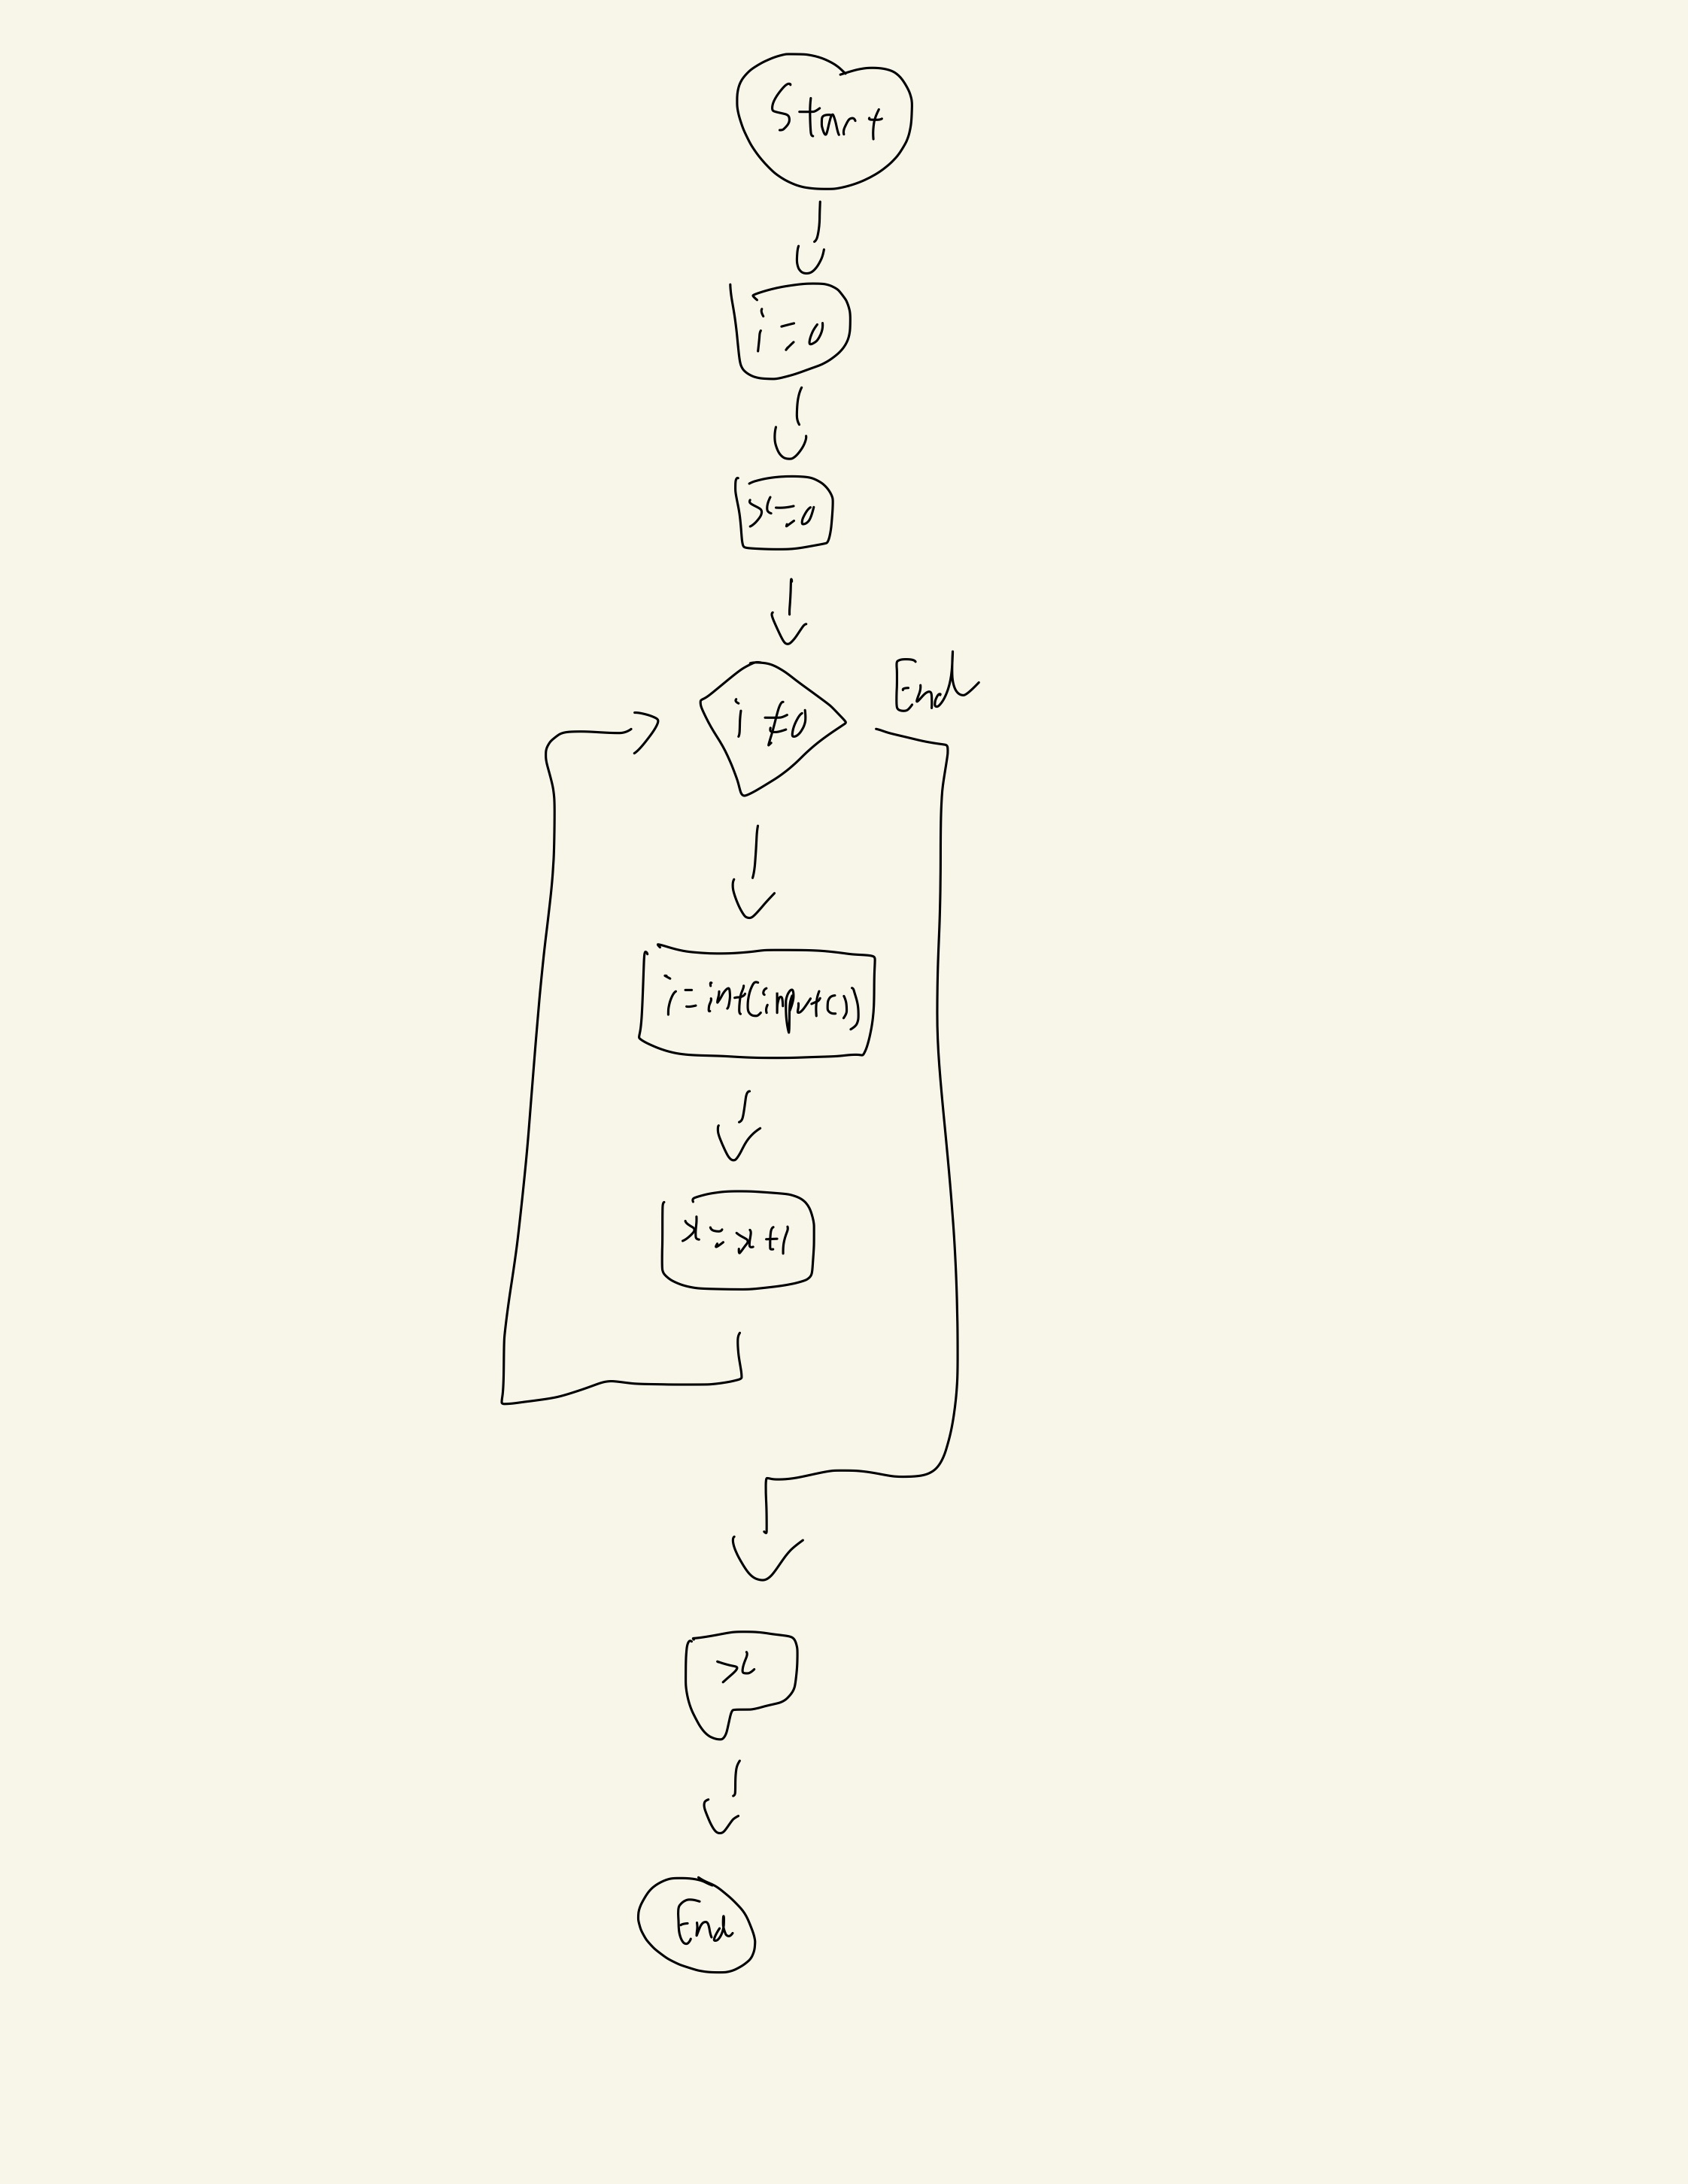 Start
i=0
x=0
i≠0
End
i=int(input())
x=x+1
x
End